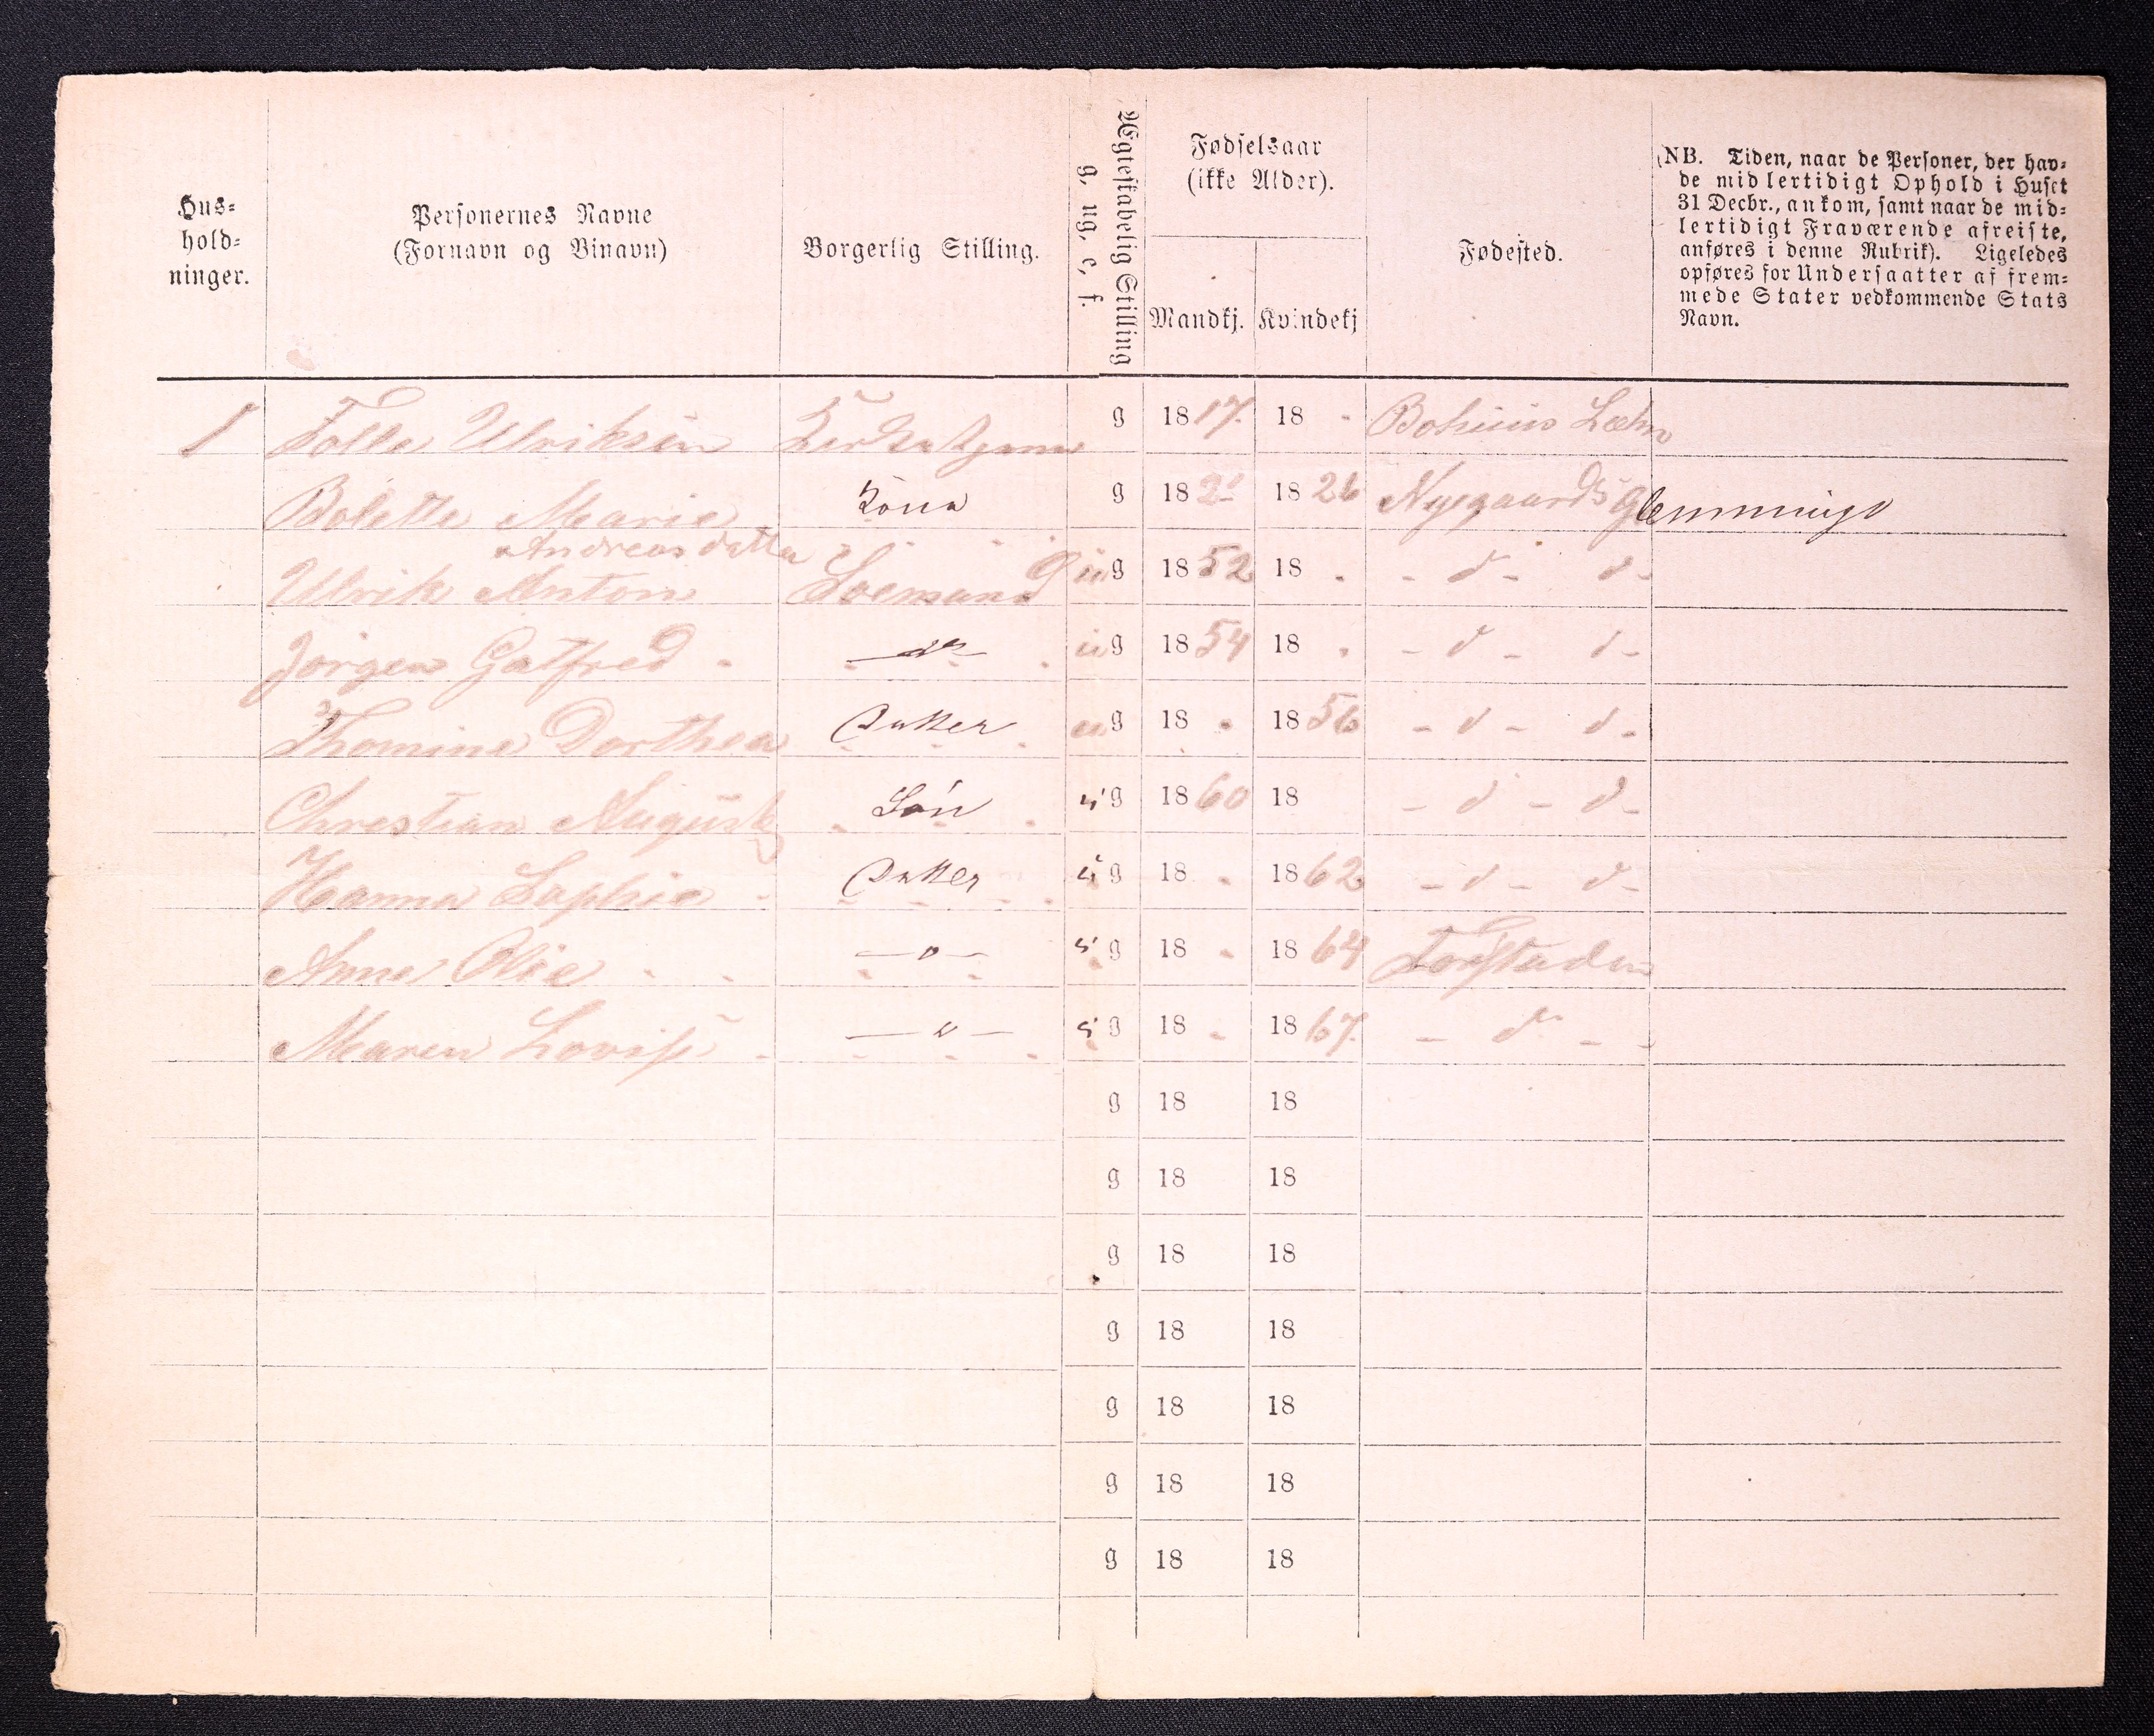 Hus-
hold-
ninger.
Personernes Navne
(Fornavn og Vinavn)
Borgerlig Stilling.
Ægteskabelig Stilling
g, ug, e, f.
Fødselsaar
(ikke Alder).
Mandkj. Kvindekj
Fødested.
(NB. Tiden, naar de Personer, der hav-
de midlertidigt Ophold i Huset
31 Decbr., ankom, samt naar de mid-
lertidigt Fraværende afreiste,
anføres i denne Rubrik). Ligeledes
opføres for Undersaatter af frem-
mede Stater vedkommende Stats
Navn.
1 Tolle Ulriksen g 1817. 18 - Bohuus Læhn
Bolette Marie Kona g 18 1826 Nygaards Glemminge
Andreasdatter
Ulrik Anton Soemand ug 1852 18 - d - d -
Jørgen Gatfred - do ug 1854 18 - d - d -
Thomine Dorthea Datter ug 18 - 1856 - d - d -
Christian August Søn ug 1860 18 - d - d -
Hanna Sophie Datter ug 18 - 1862 - d - d -
Anne Olie — " — ug 18 - 1864 Forstaden
Maren Lovise — " — ug 18 - 1867. - d -
g 18 18
g 18 18
g 18 18
g 18 18
g 18 18
g 18 18
g 18 18